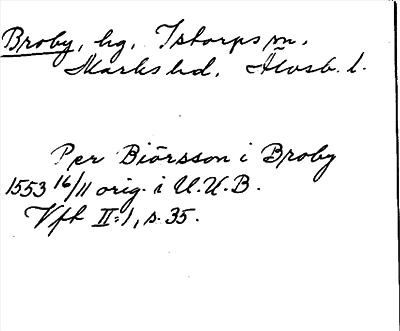 Broby, hg, Istorps sn.
Marks hd, Älvsb. l.
Per Biörsson i Broby
1553 16/11 orig. i U.U.B.
Vfh II:1, s. 35.